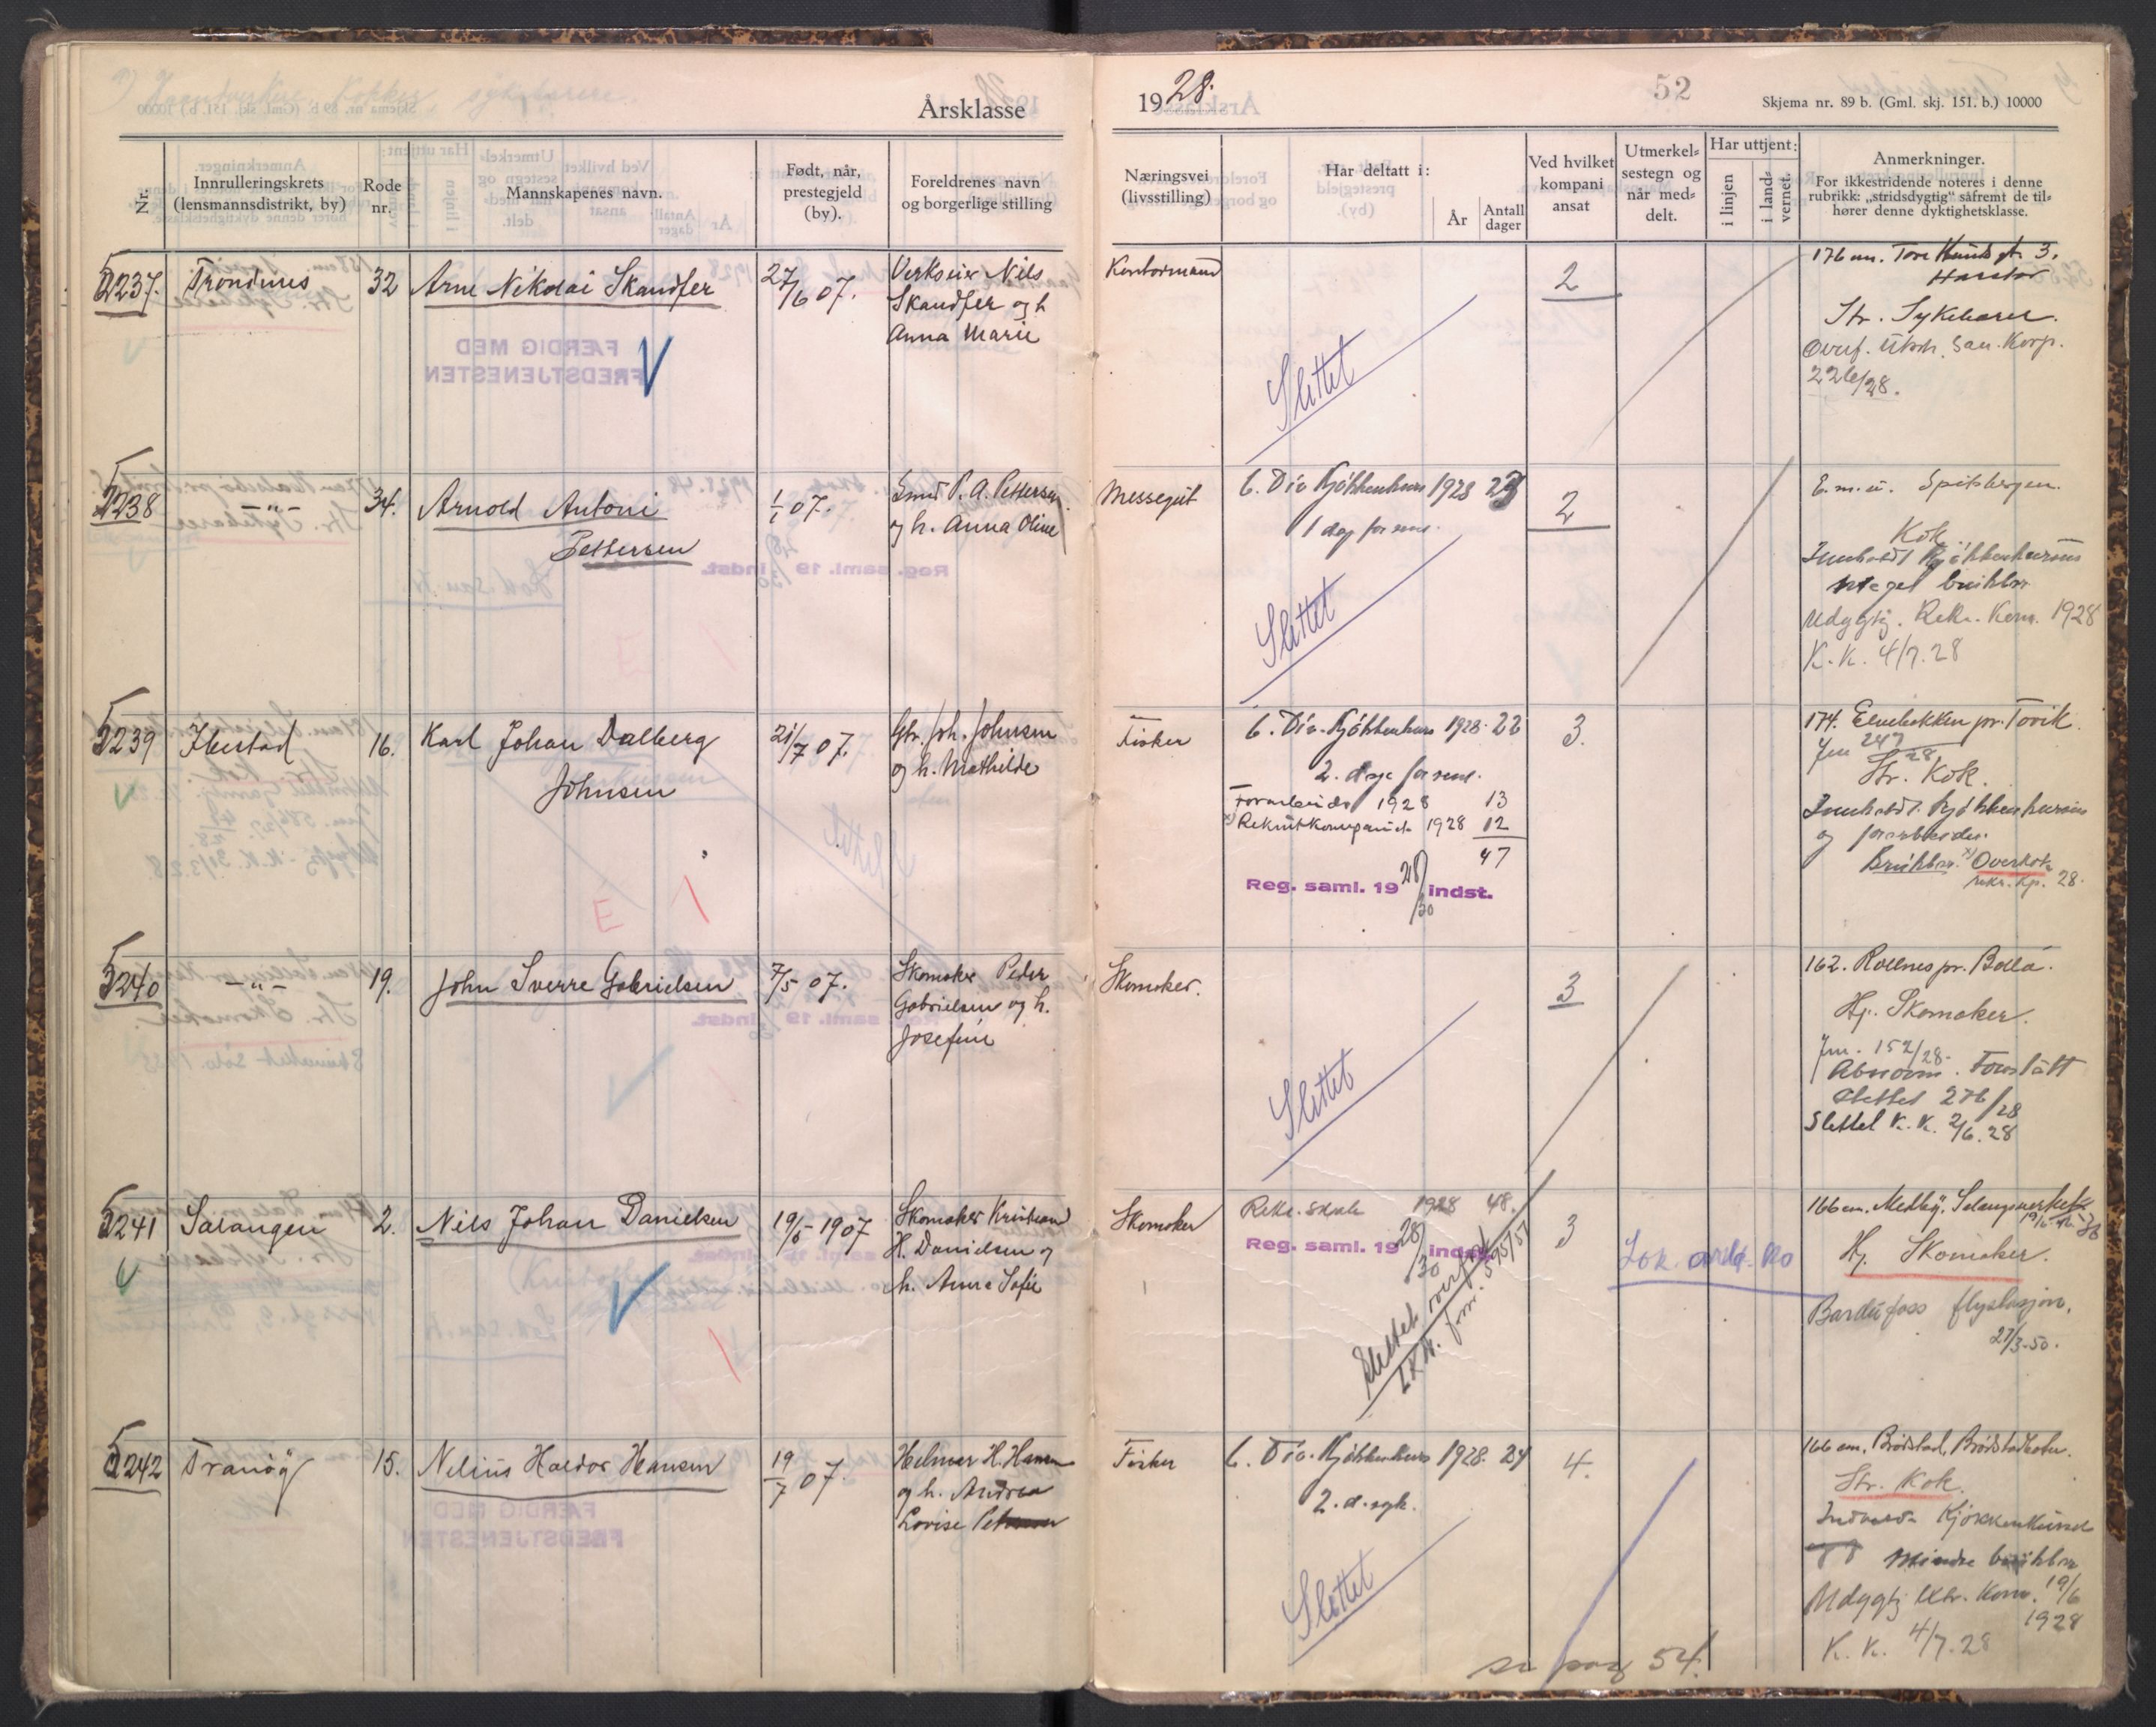 Årsklasse 1928.
52
Skjema nr. 89 b. (Gml. skj. 151. b.) 10000
Nr.
Innrulleringskrets
(lensmannsdistrikt, by)
Rode
nr.
Mannskapenes navn.
Født, når,
prestegjeld
(by).
Foreldrenes navn
og borgerlige stilling
Næringsvei
(livsstilling)
Har deltatt i:
År
Antall
dager
Ved hvilket
kompani
ansat
Utmerkel=
sestegn og
når med=
delt.
Har uttjent:
i linjen
i land=
vernet.
Anmerkninger.
For ikkestridende noteres i denne
rubrikk: „stridsdygtig" såfremt de til=
hører denne dyktighetsklasse.
5237.
Trondenes
32
Arne Nikolai Skandfer
27/6 07.
Verkseier Nils
Skandfer og h
Anna Marie
Kontormand
Slettet
2
176 cm. Tore Hunds gt. 3.
Harstad
Str. Sykebærer.
Overf. San. Korp.
22/6/28.
5238
-"-
34.
Arnold Antoni
Pettersen
1/1 07.
Smed P. A. Pettersen
og h. Anna Oline
Messegut
6. Div Kjøkkenkurs 1928 23
1 dag for sent.
Slettet
2
E.m.u. Spitsbergen.
Kok
Innholdt Kjøkkenkursus
meget brukbar
Udygtig. Rekr. Kom. 1928
K.K. 4/7.28
5239
Ibestad
16.
Karl Johan Dalberg
Johnsen
21/7 07.
Gbr. Joh. Johnsen
og h. Mathilde
Fisker
6. Div. Kjøkkenkurs 1928. 22
2. dage for sent.
Forarbeide 1928 13
x) Rekrutkompani 1928 12
47
Reg. saml. 19 28/30 indst.
3.
174. Elvebakken pr. Tovik.
Jm 247/28
Str. Kok.
Innholdt. Kjøkkenkursus
og forarbeide.
Brukbar. x) Overkok
rekr. kp. 28.
E
5240
-"-
19.
John Sverre Gabrielsen
7/5 07.
Skomaker Peder
Gabrielsen og h.
Josefine
Skomaker.
Slettet
3
162. Rollnes pr. Bolla.
Hj. Skomaker.
Jm. 152/28.
Abnorm. Forstått
Slettet 276/28
Slettet K.K. 2/6.28
5241
Salangen
2.
Nils Johan Danielsen
19/5-1907
Skomaker Kristian
H. Danielsen og
h. Anna Sofie
Skomaker
Rekr. skole 1928 48.
Reg. saml. 19 28/30 indst.
Slettet overf. til
form. 595/51
3
166 cm. Medby, Salangsverket
Hj. Skomaker.
Bardufoss flystasjon.
27/3-50.
5242
Tranöy
15.
Nelius Haldor Hansen
19/7 07.
Helmer H. Hansen
og h. Andrea
Lovise
Fisker
6. Div. Kjøkkenkurs 1928. 24
2. d. syk.
Slettet
4.
166 cm. Brödstad, Brödstadbotn.
Str. Kok.
Kjøkkenkursus
mindre brukbar
Udygtig Kom. 19/6
1928
K.K. 4/7.28
se pag 54.